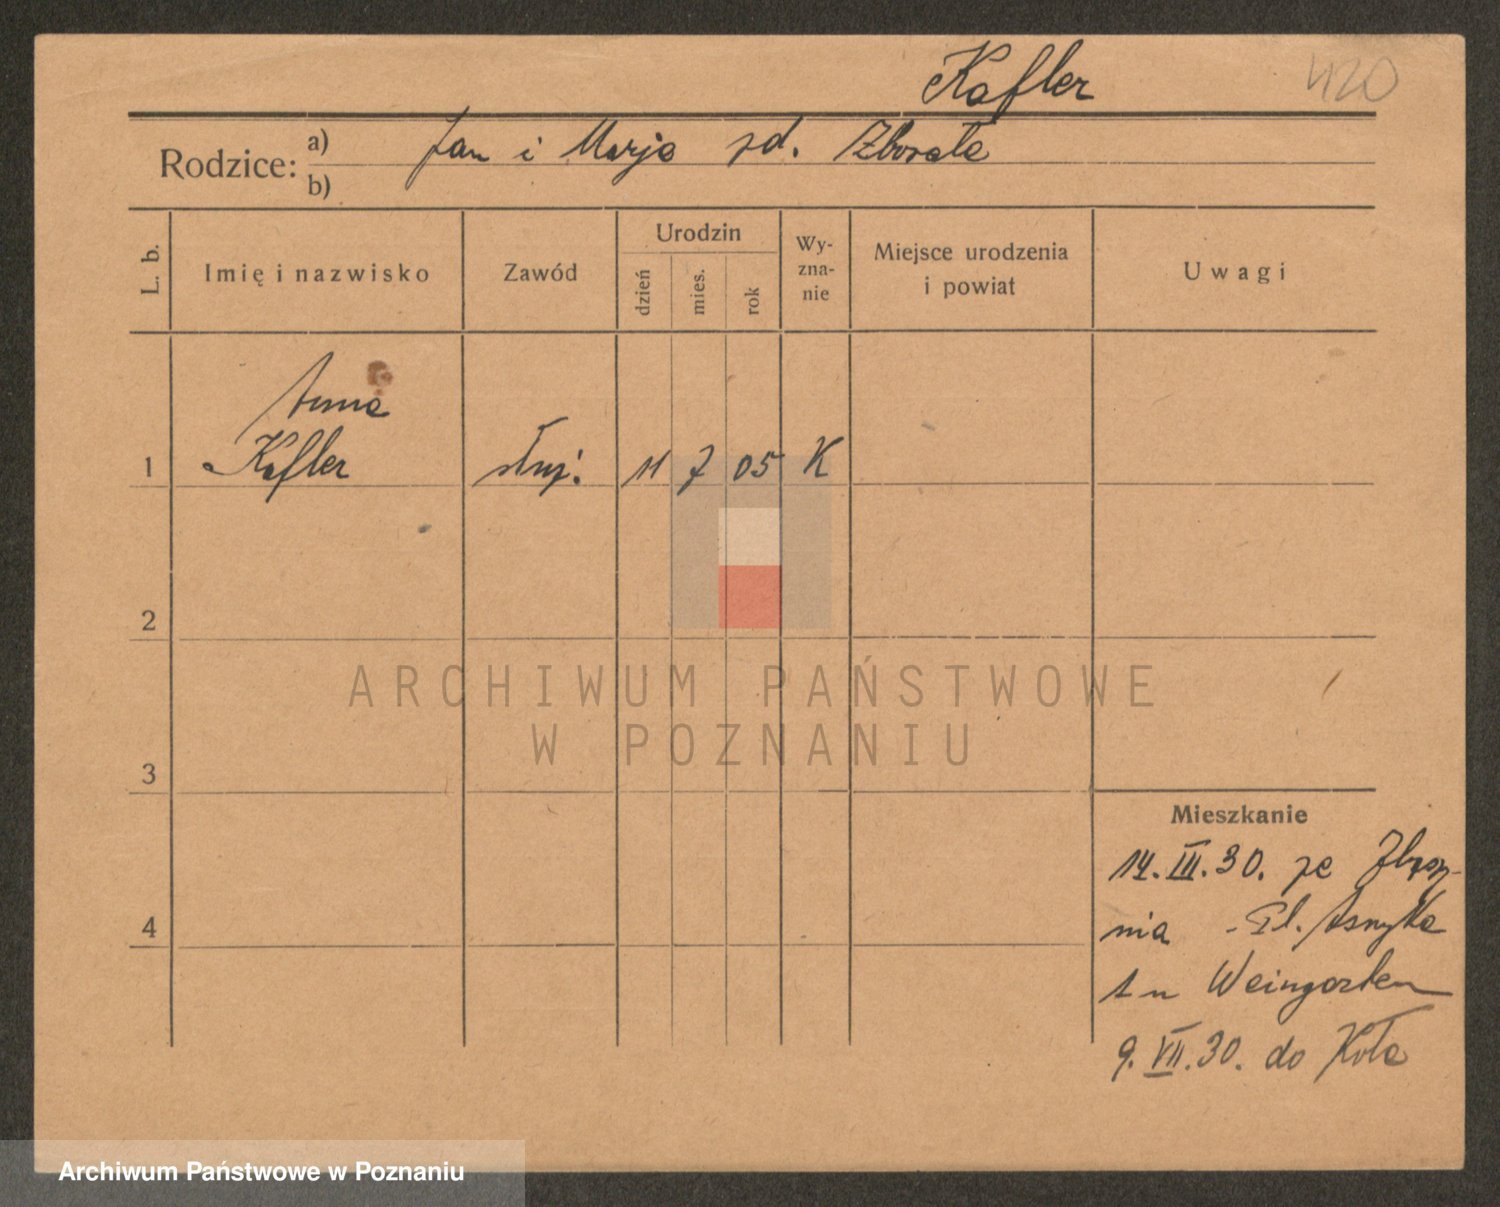 Kafler 420
Rodzice: a) Jan i Marja zd. Zborała
b)
L. b. Imię i nazwisko Zawód Urodzin dzień mies. rok Wy-zna-nie Miejsce urodzenia i powiat Uwagi
Anna
1 Kafler służ. 11 7 05 K
2
ARCHIWUM PAŃSTWOWE
W POZNANIU
3
Mieszkanie
14.III.30. ze Zbąszy-
4
nia - Pl. Asnyka
1 u Weingarten
9.VII.30. do Koła
Archiwum Państwowe w Poznaniu